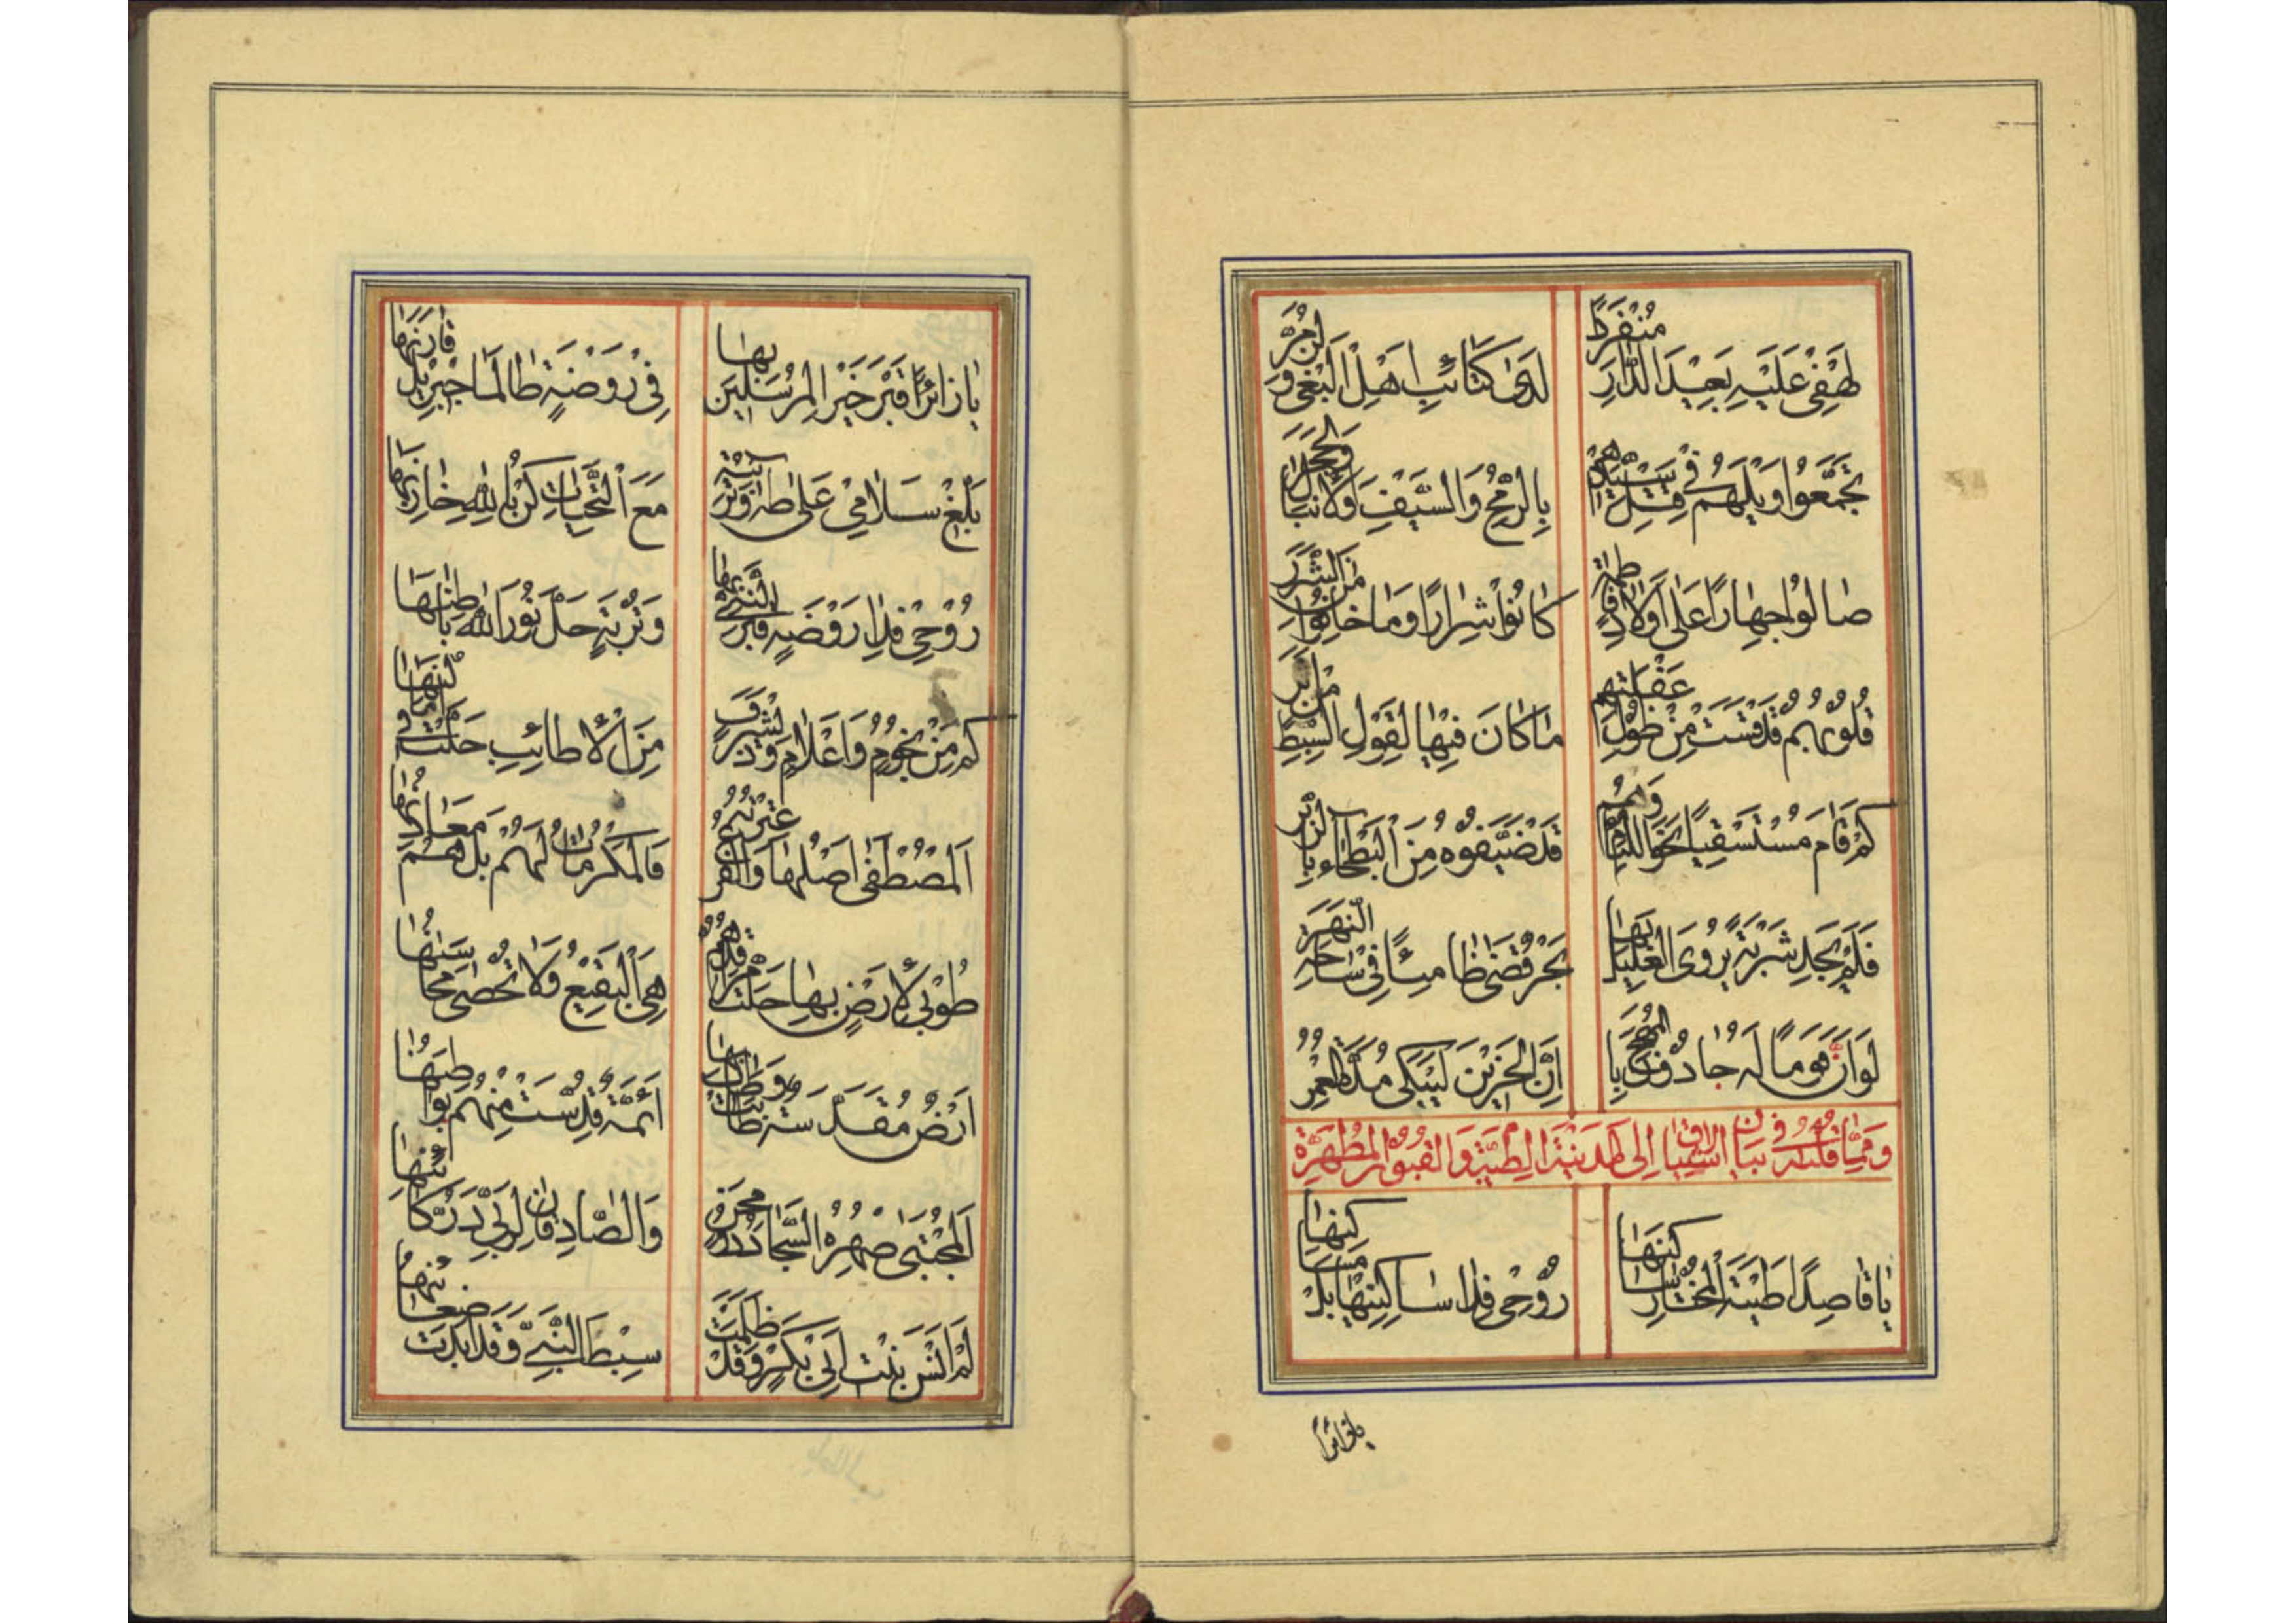 لَهْفِي عَلَيْهِ بَعِيدَ الدَّارِ مُنْفَرِدًا
لَدَى كَتَائِبِ اَهْلِ الْبَغْيِ وَ
تَجَمَّعُوا وَيْلَهُمْ فِي قَتْلِ سَيِّدِهِمْ
بِالرُّمْحِ وَالسَّيْفِ وَالْاَنْبَالِ وَالْحَجَرِ
صَالُوا جِهَارًا عَلَى اَوْلَادِ فَاطِمَةٍ
كَانُوا شِرَارًا وَمَا خَافُوا مِنَ الشَّرَرِ
قُلُوبُهُمْ قَدْ قَسَتْ مِنْ طُولِ غَفْلَتِهِمْ
مَا كَانَ فِيهَا لِقَوْلِ السِّبْطِ مِنْ اَثَرِ
كَمْ قَامَ مُسْتَسْقِيًا نَحْوَ اللِّئَامِ وَهُمْ
قَدْ ضَيَّفُوهُ مِنَ الْبَطْحَاءِ بِالزُّبُرِ
فَلَمْ يَجِدْ شَرْبَةً يُرْوَى الْغَلِيلُ بِهَا
بَحْرٌ قَضَى ظَامِئًا فِي سَاحَةِ النَّهَرِ
لَوْ اَنَّ قَوْمًا لَهُ جَادُوا بِالْمُهَجِ
اِنَّ الْحَزِينَ لَيَبْكِي مُدَّةَ الْعُمُرِ
وَمِمَّا قُلْتُهُ فِي بَيَانِ اشْتِيَاقِي اِلَى الْمَدِينَةِ الطَّيِّبَةِ وَالْقُبُورِ الْمُطَهَّرَةِ
يَا قَاصِدًا طَيْبَةَ الْمُخْتَارِ سَاكِنَهَا
رُوحِي فِدَا سَاكِنِيهَا بَلْ مَسَاكِنِهَا
يا زائرًا
يَا زَائِرًا قَبْرَ خَيْرِ الْمُرْسَلِينَ بِهَا
فِي رَوْضَةٍ طَالَمَا جِبْرِيلُ قَارَنَهَا
بَلِّغْ سَلَامِي عَلَى طٰهٰ وَتُرْبَتِهِ
مَعَ التَّحِيَّاتِ كُنْ بِاللّٰهِ خَازِنَهَا
رُوحِي فِدَا رَوْضَةٍ قَبْرُ النَّبِيِّ بِهَا
وَتُرْبَةٍ حَلَّ نُورُ اللّٰهِ بَاطِنَهَا
كَمْ مِنْ نُجُومٍ وَاَعْلَامٍ وَذِي شَرَفٍ
مِنَ الْاَطَائِبِ حَلَّتْ فِي
اَلْمُصْطَفَى اَصْلُهَا وَالْفَرْعُ عِتْرَتُهُ
فَالْمَكْرُمَاتُ لَهُمْ بَلْ هُمْ مَعَادِنُهَا
طُوبَى لِاَرْضٍ بِهَا حَلَّتْ
هِيَ الْبَقِيعُ وَلَا تُحْصَى مَحَاسِنُهَا
اَرْضٌ مُقَدَّسَةٌ طَابَتْ وَطَابَ بِهَا
اَئِمَّةٌ قُدِّسَتْ مِنْهُمْ بَوَاطِنُهَا
اَلْمُجْتَبَى صِهْرُهُ السَّجَّادُ ذُو مِحَنٍ
وَالصَّادِقَانِ
لَمْ اَنْسَ بِنْتَ اَبِي بَكْرٍ وَقَدْ ظَلَمَتْ
سِبْطَ النَّبِيِّ وَقَدْ اَبْدَتْ ضَغَائِنَهَا